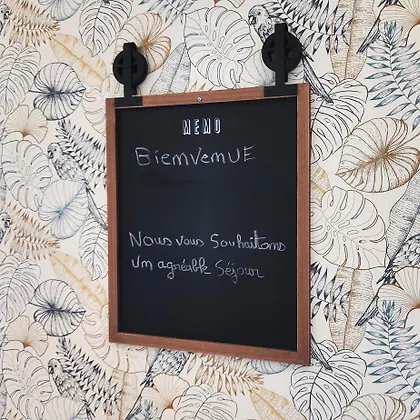 MEMO
BiemVemUE
Nous vous Souhaitoms
Um agréable Séjour